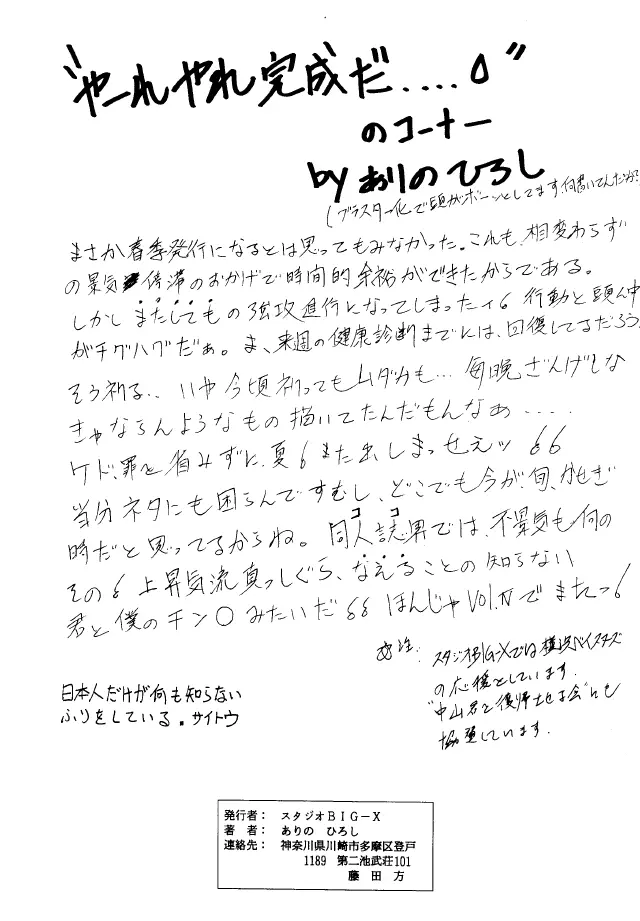 “やーれやれ完成だ....♂”
のコーナー
by ありのひろし
(ブラスター化で頭がボーッとしてます、何書いてんだか?
まさか春季発行になるとは思ってもみなかった。これも、相変わらず
の景気停滞のおかげで時間的余裕ができたからである。
しかしまたしてもの強攻進行になってしまったィ6 行動と頭ん中
がチグハグだぁ。ま、来週の健康診断までには、回復してるだろう。
そう祈る.. いや今頃祈ってもムダかも… 毎晩ざんげしな
きゃならんようなもの描いてたんだもんなぁ....
ケド、罪を省みずに、夏6また出しまっせェッ66
当分ネタにも困らんですむし、どこでも今が、旬、かせぎ
時だと思ってるからね。同人誌界では、不景気も何の
ココ
その6 上昇気流真っしぐら、なえることの知らない
君と僕のチン〇みたいだ66 ほんじゃVol.Ⅳでまたっ6
スタジオBIG-Xでは横浜ベイスターズ
の応援をしています.
“中山君を復帰させる会”にも
協賛しています.
日本人だけが何も知らない
ふりをしている。サイトウ
発行者: スタジオBIG-X
著 者: ありの ひろし
連絡先: 神奈川県川崎市多摩区登戸
1189 第二池武荘101
藤 田 方